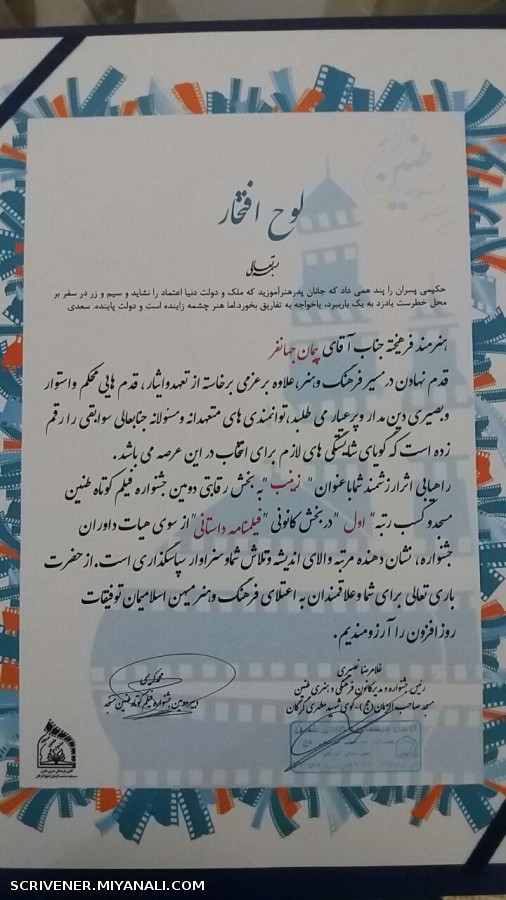 لوح افتخار
بسمه تعالی
حکیمی پسران را پند همی داد که جانان پدرهنرآموزید که ملک و دولت دنیا اعتماد را نشاید و سیم و زر در سفر بر
محل خطرست یادزد به یک بارببرد، یاخواجه به تفاریق بخورد.اما هنر چشمه زاینده است و دولت پاینده. سعدی
هنرمند فرهیخته جناب آقای پیمان جهانفر
قدم نهادن در مسیر فرهنگ و هنر،علاوه بر عزمی برخاسته از تعهدوایثار، قدم هایی محکم واستوار
وبصیری دین مدار و پرعیار می طلبد،توانمندی های متعهدانه ومسئولانه جنابعالی سوابقی را رقم
زده است که گویای شایستگی های لازم برای انتخاب در این عرصه می باشد.
راهیابی اثرارزشمند شماباعنوان " زینب " به بخش رقابتی دومین جشنواره فیلم کوتاه طنین
مسجدوکسب رتبه " اول " دربخش کانونی "فیلمنامه داستانی" از سوی هیات داوران
جشنواره، نشان دهنده مرتبه والای اندیشه وتلاش شماوسزاوار سپاسگذاری است.ازحضرت
باری تعالی برای شما وعلاقمندان به اعتلای فرهنگ وهنرمیهن اسلامیمان توفیقات
روزافزون را آرزومندیم.
غلامرضا نصیری
رئیس جشنواره و مدیرکانون فرهنگی و هنری طنین
مسجد صاحب الزمان(عج)-کوی شهید مطهری گرگان
دبیر دومین جشنواره فیلم کوتاه طنین مسجد
طنین
SCRIVENER.MIYANALI.COM